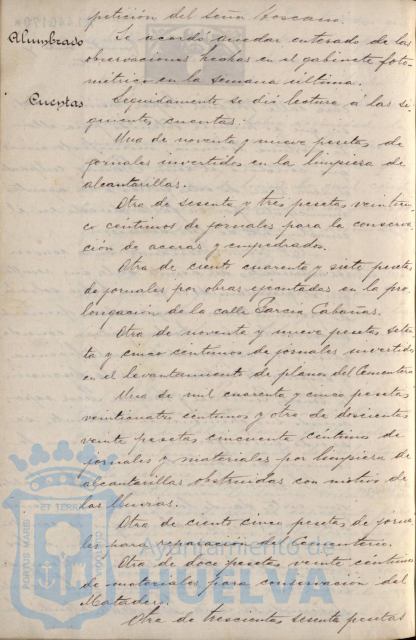 petición del Señor Toscano.
Alumbrado Se acordó quedar enterado de las
observaciones hechas en el gabinete foto-
métrico en la semana última.
Cuentas Seguidamente se dió lectura á las si-
guientes cuentas:
Una de noventa y nueve pesetas de
jornales invertidos en la limpieza de
alcantarillas.
Otra de sesenta y tres pesetas veintcin-
co céntimos de jornales para la conserva-
ción de aceras y empedrados.
Otra de ciento cuarenta y siete pesetas
de jornales por obras ejecutadas en la pro-
longación de la calle Garcia Cabañas.
Otra de noventa y nueve pesetas seten-
ta y cinco centimos de jornales invertidos
en el levantamiento de planos del Cementerio
Una de mil cuarenta y cinco pesetas
veinticuatro céntimos y otra de doscientas
veinte pesetas cincuenta céntimos de
jornales y materiales por limpieza de
alcantarillas obstruidas con motivo de
las lluvias.
Otra de ciento cinco pesetas de jorna-
les para reparación del Cementerio.
Otra de doce pesetas veinte céntimos
de materiales para conservación del
Matadero.
Otra de trescientas sesenta pesetas
PORTUS MARIS ET TERRAE CUSTODIO
Ayuntamiento de
HUELVA